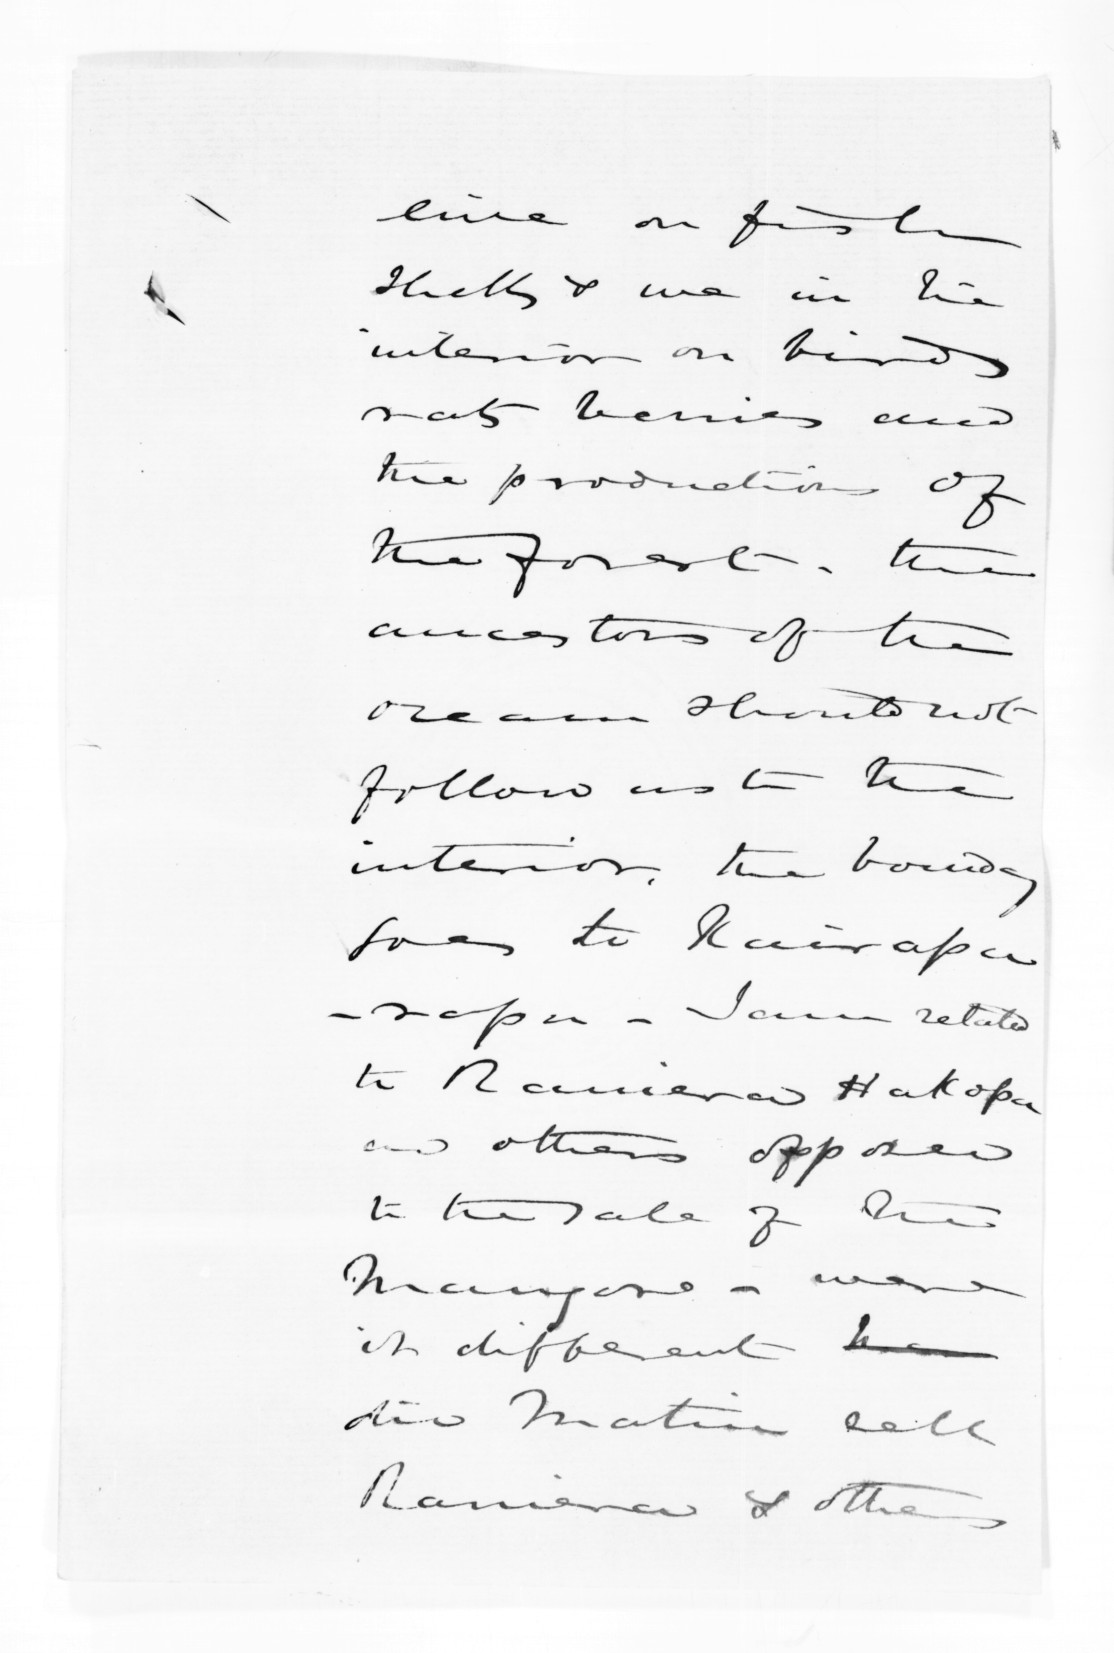 live on fish
Shells & we in the
interior on birds
rats berries and
the productions of
the forest. the
ancestors of the
ocean should not
follow us to the
interior, the bounday
goes to
-rapa - I am related
to Raniera Hakopa
and others opposed
to the sale of the
Mangore - were
it different
did Matiu sell
Raniera & others